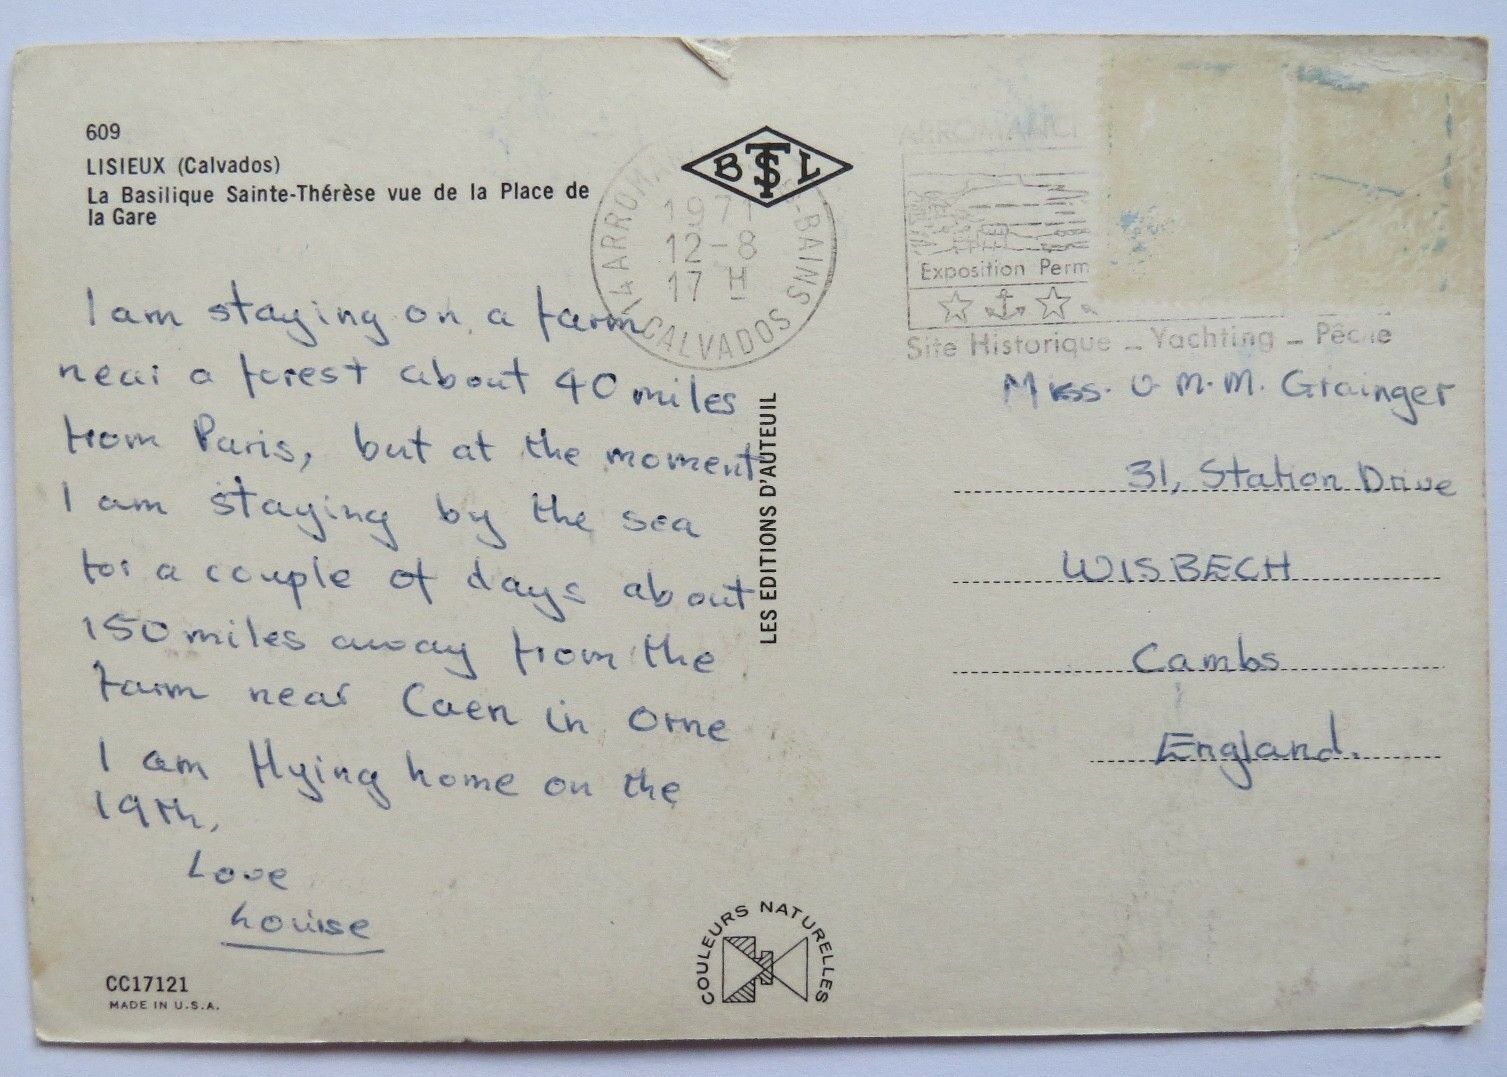 609
LISIEUX (Calvados)
La Basilique Sainte-Thérèse vue de la Place de
la Gare
BTSL
1971
12-8
17 H
14 CALVADOS
-BAINS
Exposition Perm
Site Historique - Yachting - Pêche
I am staying on a farm
near a forest about 40 miles
from Paris, but at the moment
I am staying by the sea
for a couple of days about
150 miles away from the
farm near Caen in Orne
I am flying home on the
19th.
Love
Louise
CC17121
MADE IN U.S.A.
LES EDITIONS D'AUTEUIL
COULEURS NATURELLES
Miss. M.M. Grainger
31, Station Drive
WISBECH
Cambs
England.